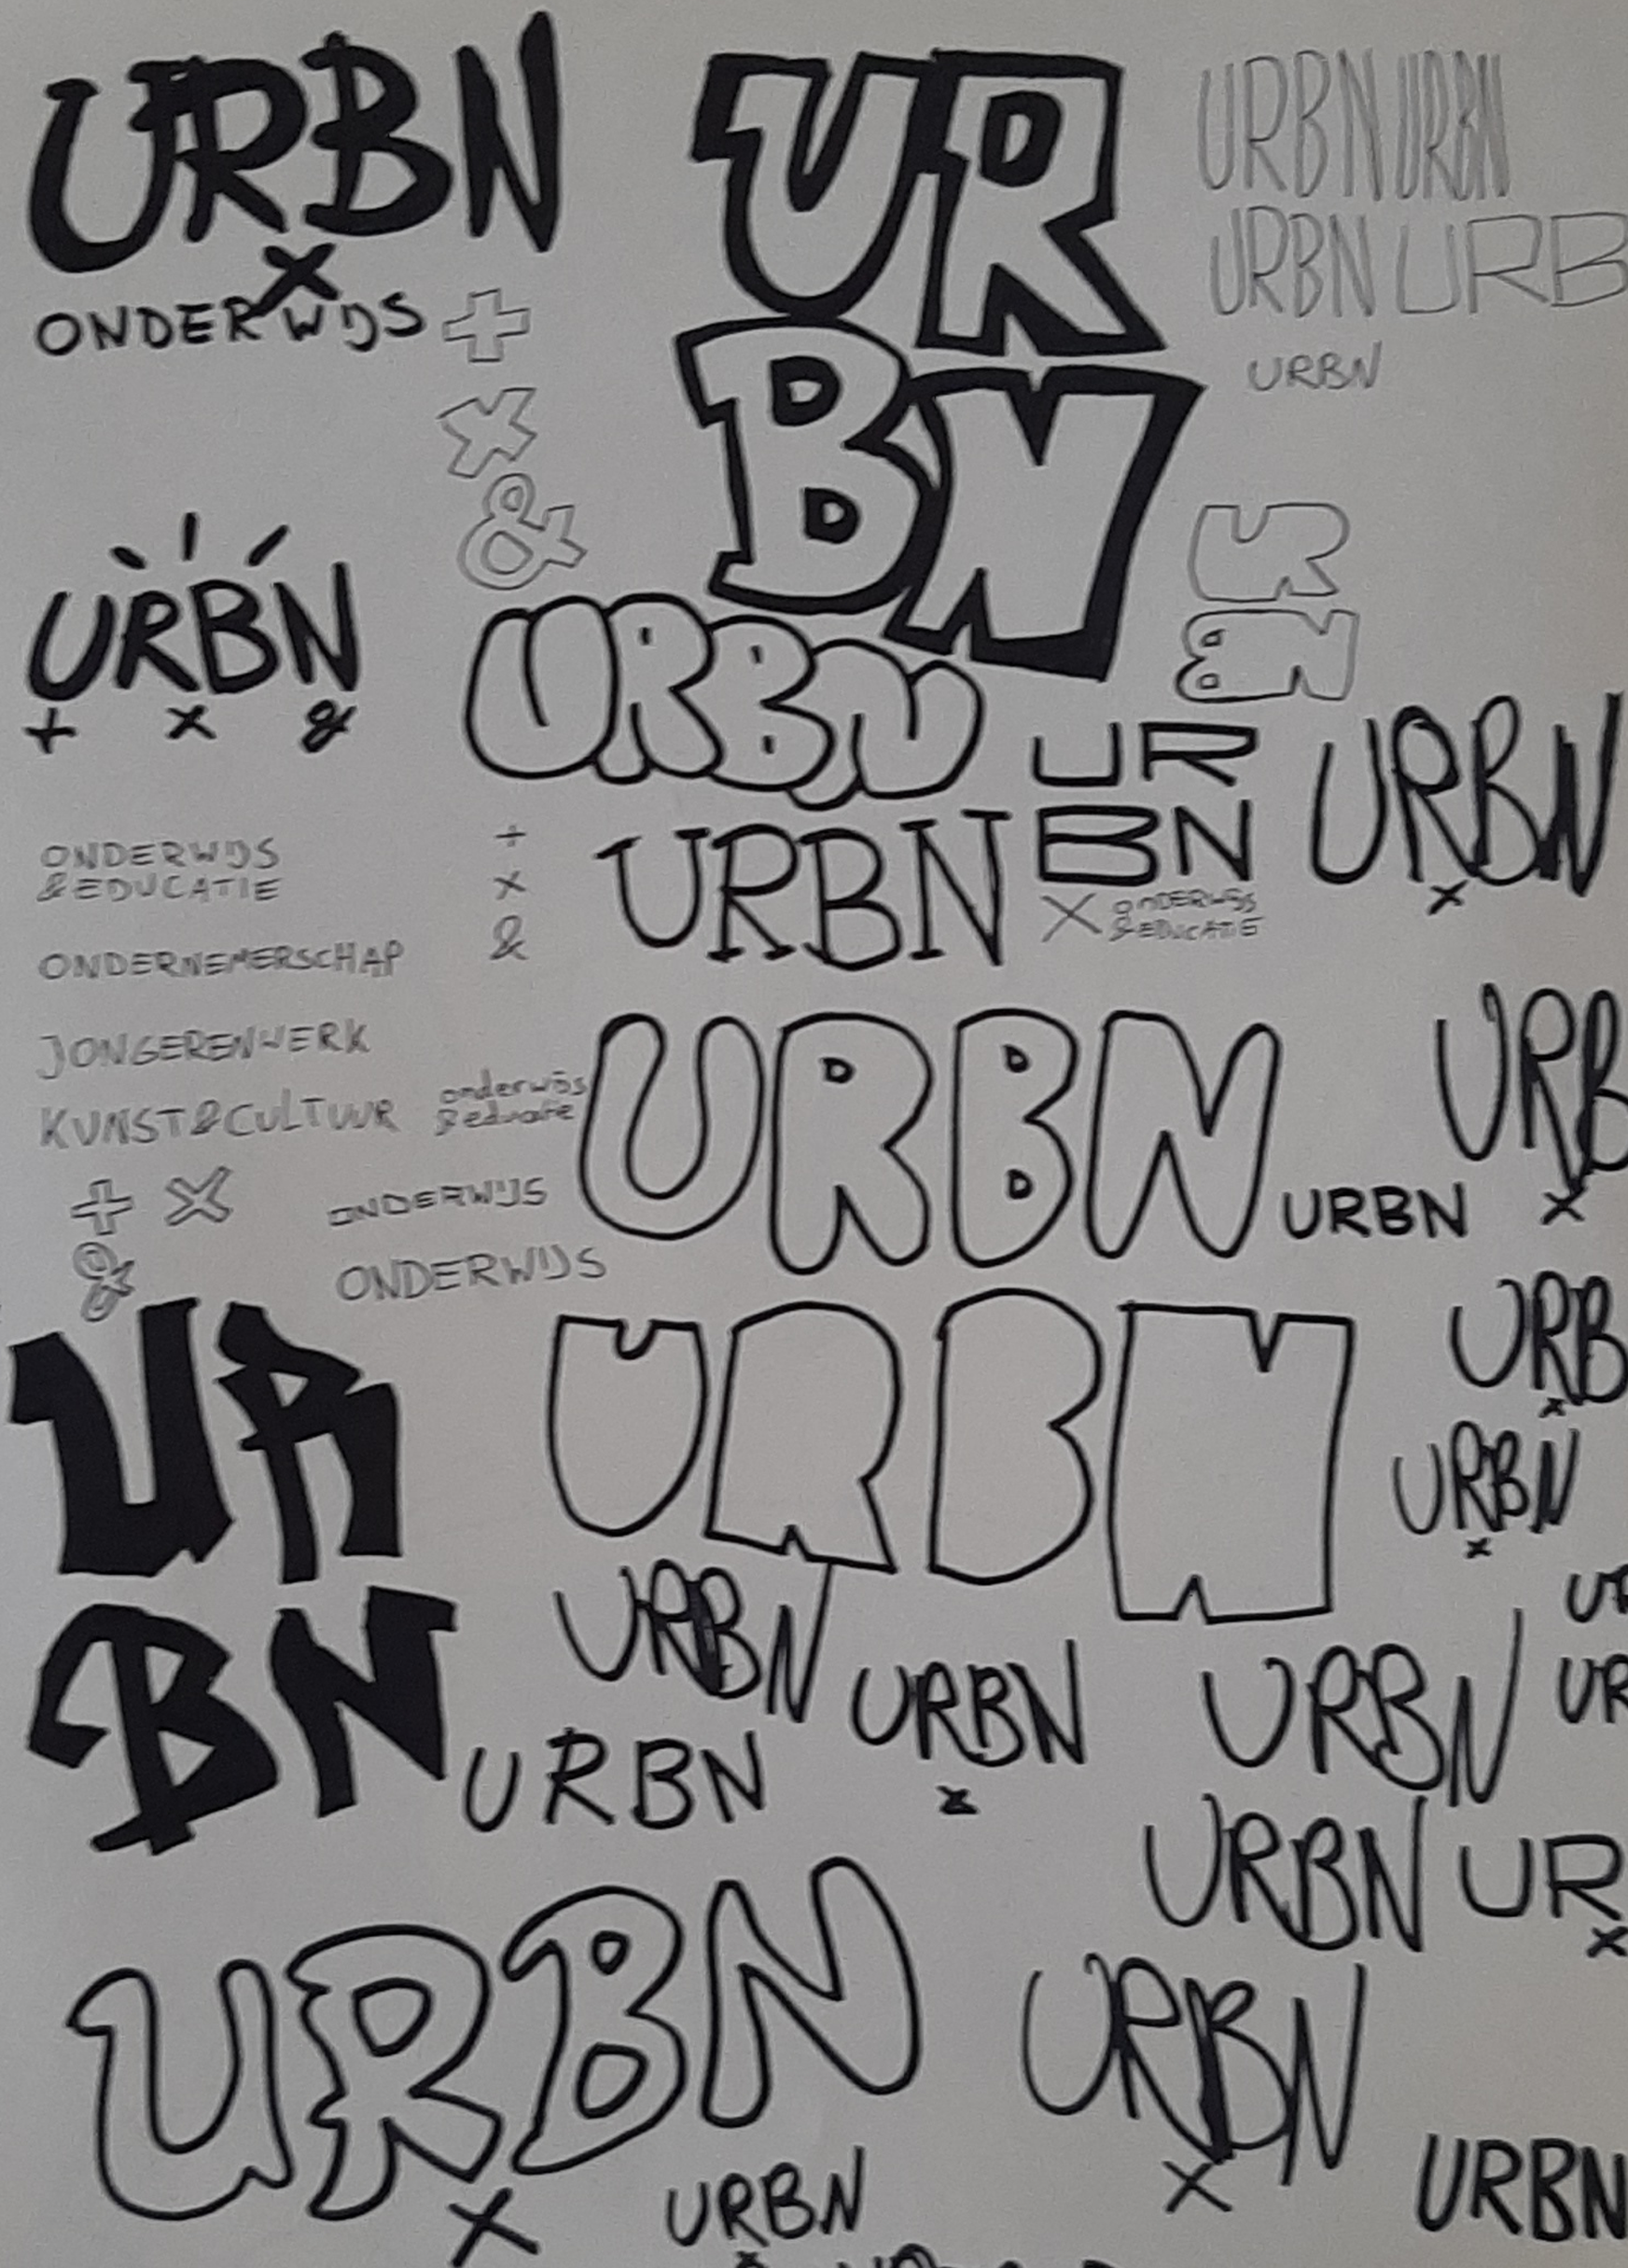 URBN
x
ONDERWIJS
+
x
&
UR
BN
URBN URBN
URBN URB
URBN
UR
BN
URBN
+ x &
URBN
UR
BN
x ONDERWIJS
& EDUCATIE
URBN
x
URBN
ONDERWIJS
& EDUCATIE
ONDERNEMERSCHAP
JONGERENWERK
KUNST & CULTUUR
+
x
&
onderwijs
& educatie
+ x
&
ONDERWIJS
ONDERWIJS
URBN
URBN
URB
x
UR
BN
URBN
URB
x
URBN
x
UR
UR
URBN
URBN
x
URBN
URBN
URBN
UR
x
URBN
x
URBN
x
URBN
x
URBN